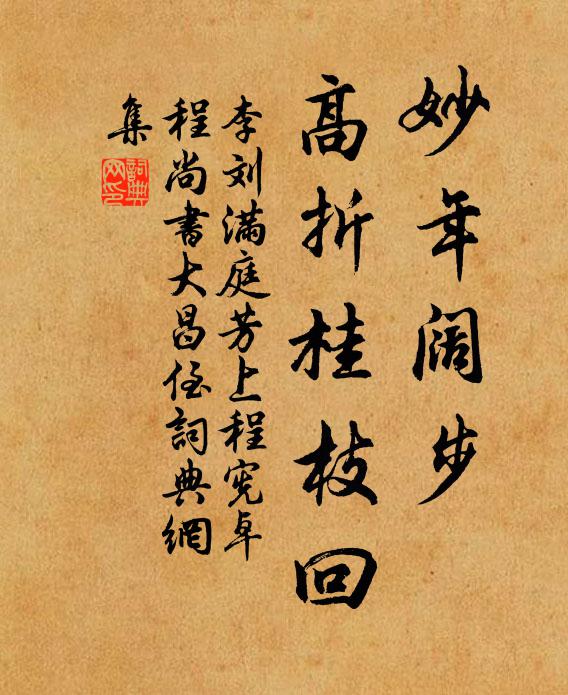 妙年阔步
高折桂枝回
李刘满庭芳上程宪卓
程尚书大昌侄词典網
集
詞典網印